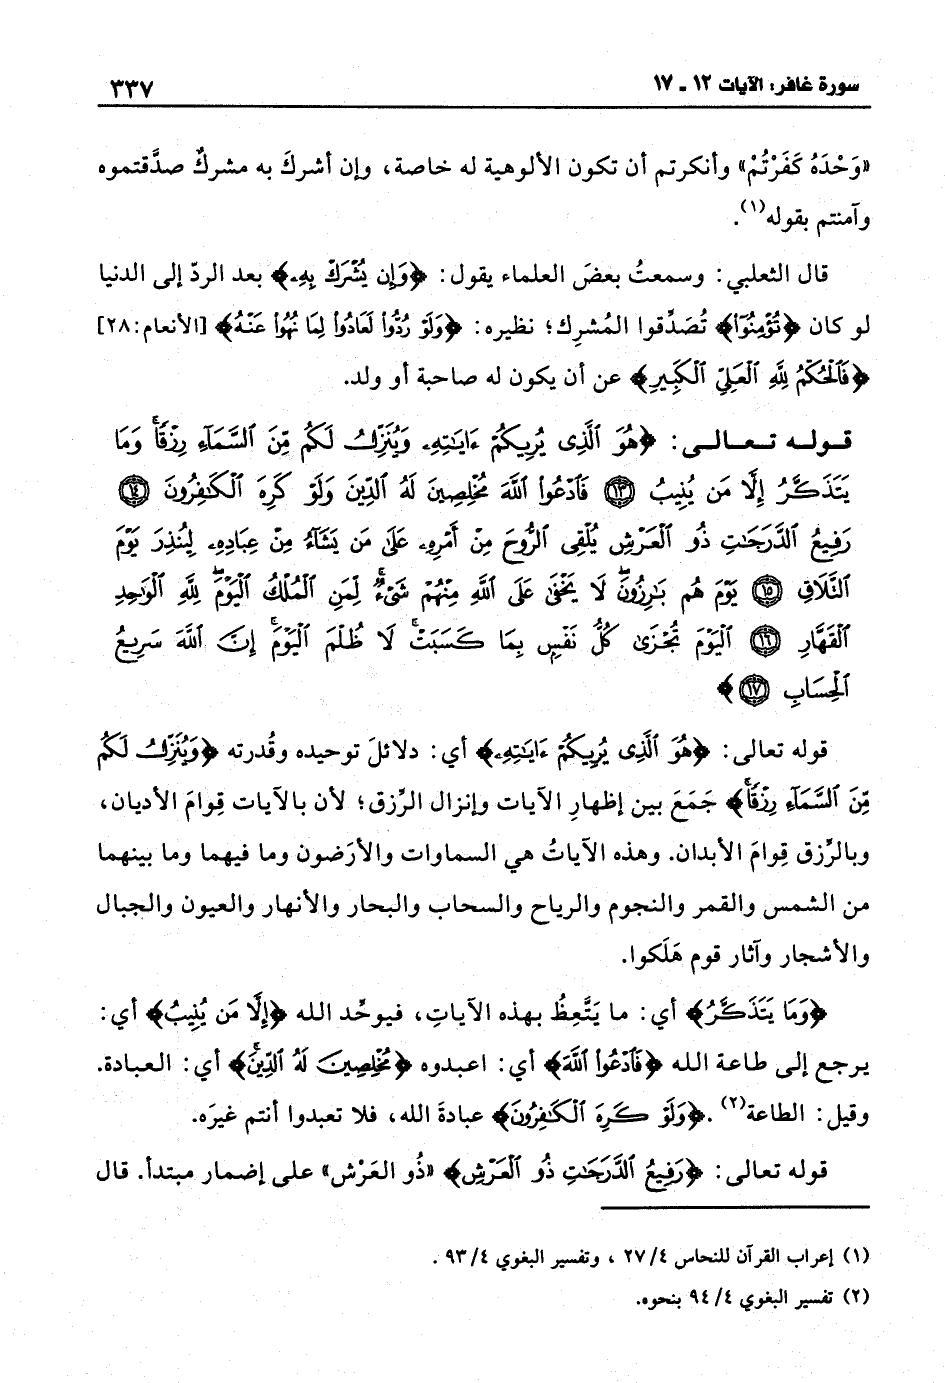 سورة غافر: الآيات ١٢ ـ ١٧
٣٣٧
«وَحْدَهُ كَفَرْتُمْ» وأنكرتم أن تكون الألوهية له خاصة، وإن أشركَ به مشركٌ صدَّقتموه
وآمنتم بقوله(١).
قال الثعلبي: وسمعتُ بعضَ العلماء يقول: ﴿وَإِن يُشْرَكْ بِهِۦ﴾ بعد الردّ إلى الدنيا
لو كان ﴿تُؤْمِنُوٓا﴾ تُصَدِّقوا المُشرِك؛ نظيره: ﴿وَلَوْ رُدُّوا لَعَادُوا لِمَا نُهُوا عَنْهُ﴾ [الأنعام: ٢٨]
﴿فَٱلْحُكْمُ لِلَّهِ ٱلْعَلِيِّ ٱلْكَبِيرِ﴾ عن أن يكون له صاحبة أو ولد.
قوله تعالى: ﴿هُوَ ٱلَّذِى يُرِيكُمْ ءَايَٰتِهِۦ وَيُنَزِّلُ لَكُم مِّنَ ٱلسَّمَآءِ رِزْقًا ۚ وَمَا
يَتَذَكَّرُ إِلَّا مَن يُنِيبُ ١٣ فَٱدْعُوا ٱللَّهَ مُخْلِصِينَ لَهُ ٱلدِّينَ وَلَوْ كَرِهَ ٱلْكَٰفِرُونَ ١٤
رَفِيعُ ٱلدَّرَجَٰتِ ذُو ٱلْعَرْشِ يُلْقِى ٱلرُّوحَ مِنْ أَمْرِهِۦ عَلَىٰ مَن يَشَآءُ مِنْ عِبَادِهِۦ لِيُنذِرَ يَوْمَ
ٱلتَّلَاقِ ١٥ يَوْمَ هُم بَٰرِزُونَ ۖ لَا يَخْفَىٰ عَلَى ٱللَّهِ مِنْهُمْ شَىْءٌ ۚ لِّمَنِ ٱلْمُلْكُ ٱلْيَوْمَ ۖ لِلَّهِ ٱلْوَٰحِدِ
ٱلْقَهَّارِ ١٦ ٱلْيَوْمَ تُجْزَىٰ كُلُّ نَفْسٍۭ بِمَا كَسَبَتْ ۚ لَا ظُلْمَ ٱلْيَوْمَ ۚ إِنَّ ٱللَّهَ سَرِيعُ
ٱلْحِسَابِ ١٧﴾
قوله تعالى: ﴿هُوَ ٱلَّذِى يُرِيكُمْ ءَايَٰتِهِۦ﴾ أي: دلائلَ توحيده وقُدرته ﴿وَيُنَزِّلُ لَكُم
مِّنَ ٱلسَّمَآءِ رِزْقًا ۚ﴾ جَمَعَ بين إظهارِ الآيات وإنزال الرِّزق؛ لأن بالآيات قِوامَ الأديان،
وبالرِّزق قِوامَ الأبدان. وهذه الآياتُ هي السماوات والأرَضون وما فيهما وما بينهما
من الشمس والقمر والنجوم والرياح والسحاب والبحار والأنهار والعيون والجبال
والأشجار وآثار قوم هَلَكوا.
﴿وَمَا يَتَذَكَّرُ﴾ أي: ما يَتَّعِظُ بهذه الآياتِ، فيوحِّد الله ﴿إِلَّا مَن يُنِيبُ﴾ أي:
يرجع إلى طاعة الله ﴿فَٱدْعُوا ٱللَّهَ﴾ أي: اعبدوه ﴿مُخْلِصِينَ لَهُ ٱلدِّينَ ۚ﴾ أي: العبادة.
وقيل: الطاعة(٢). ﴿وَلَوْ كَرِهَ ٱلْكَٰفِرُونَ﴾ عبادةَ الله، فلا تعبدوا أنتم غيرَه.
قوله تعالى: ﴿رَفِيعُ ٱلدَّرَجَٰتِ ذُو ٱلْعَرْشِ﴾ «ذُو العَرْش» على إضمار مبتدأ. قال
(١) إعراب القرآن للنحاس ٢٧/٤ ، وتفسير البغوي ٩٣/٤ .
(٢) تفسير البغوي ٩٤/٤ بنحوه.